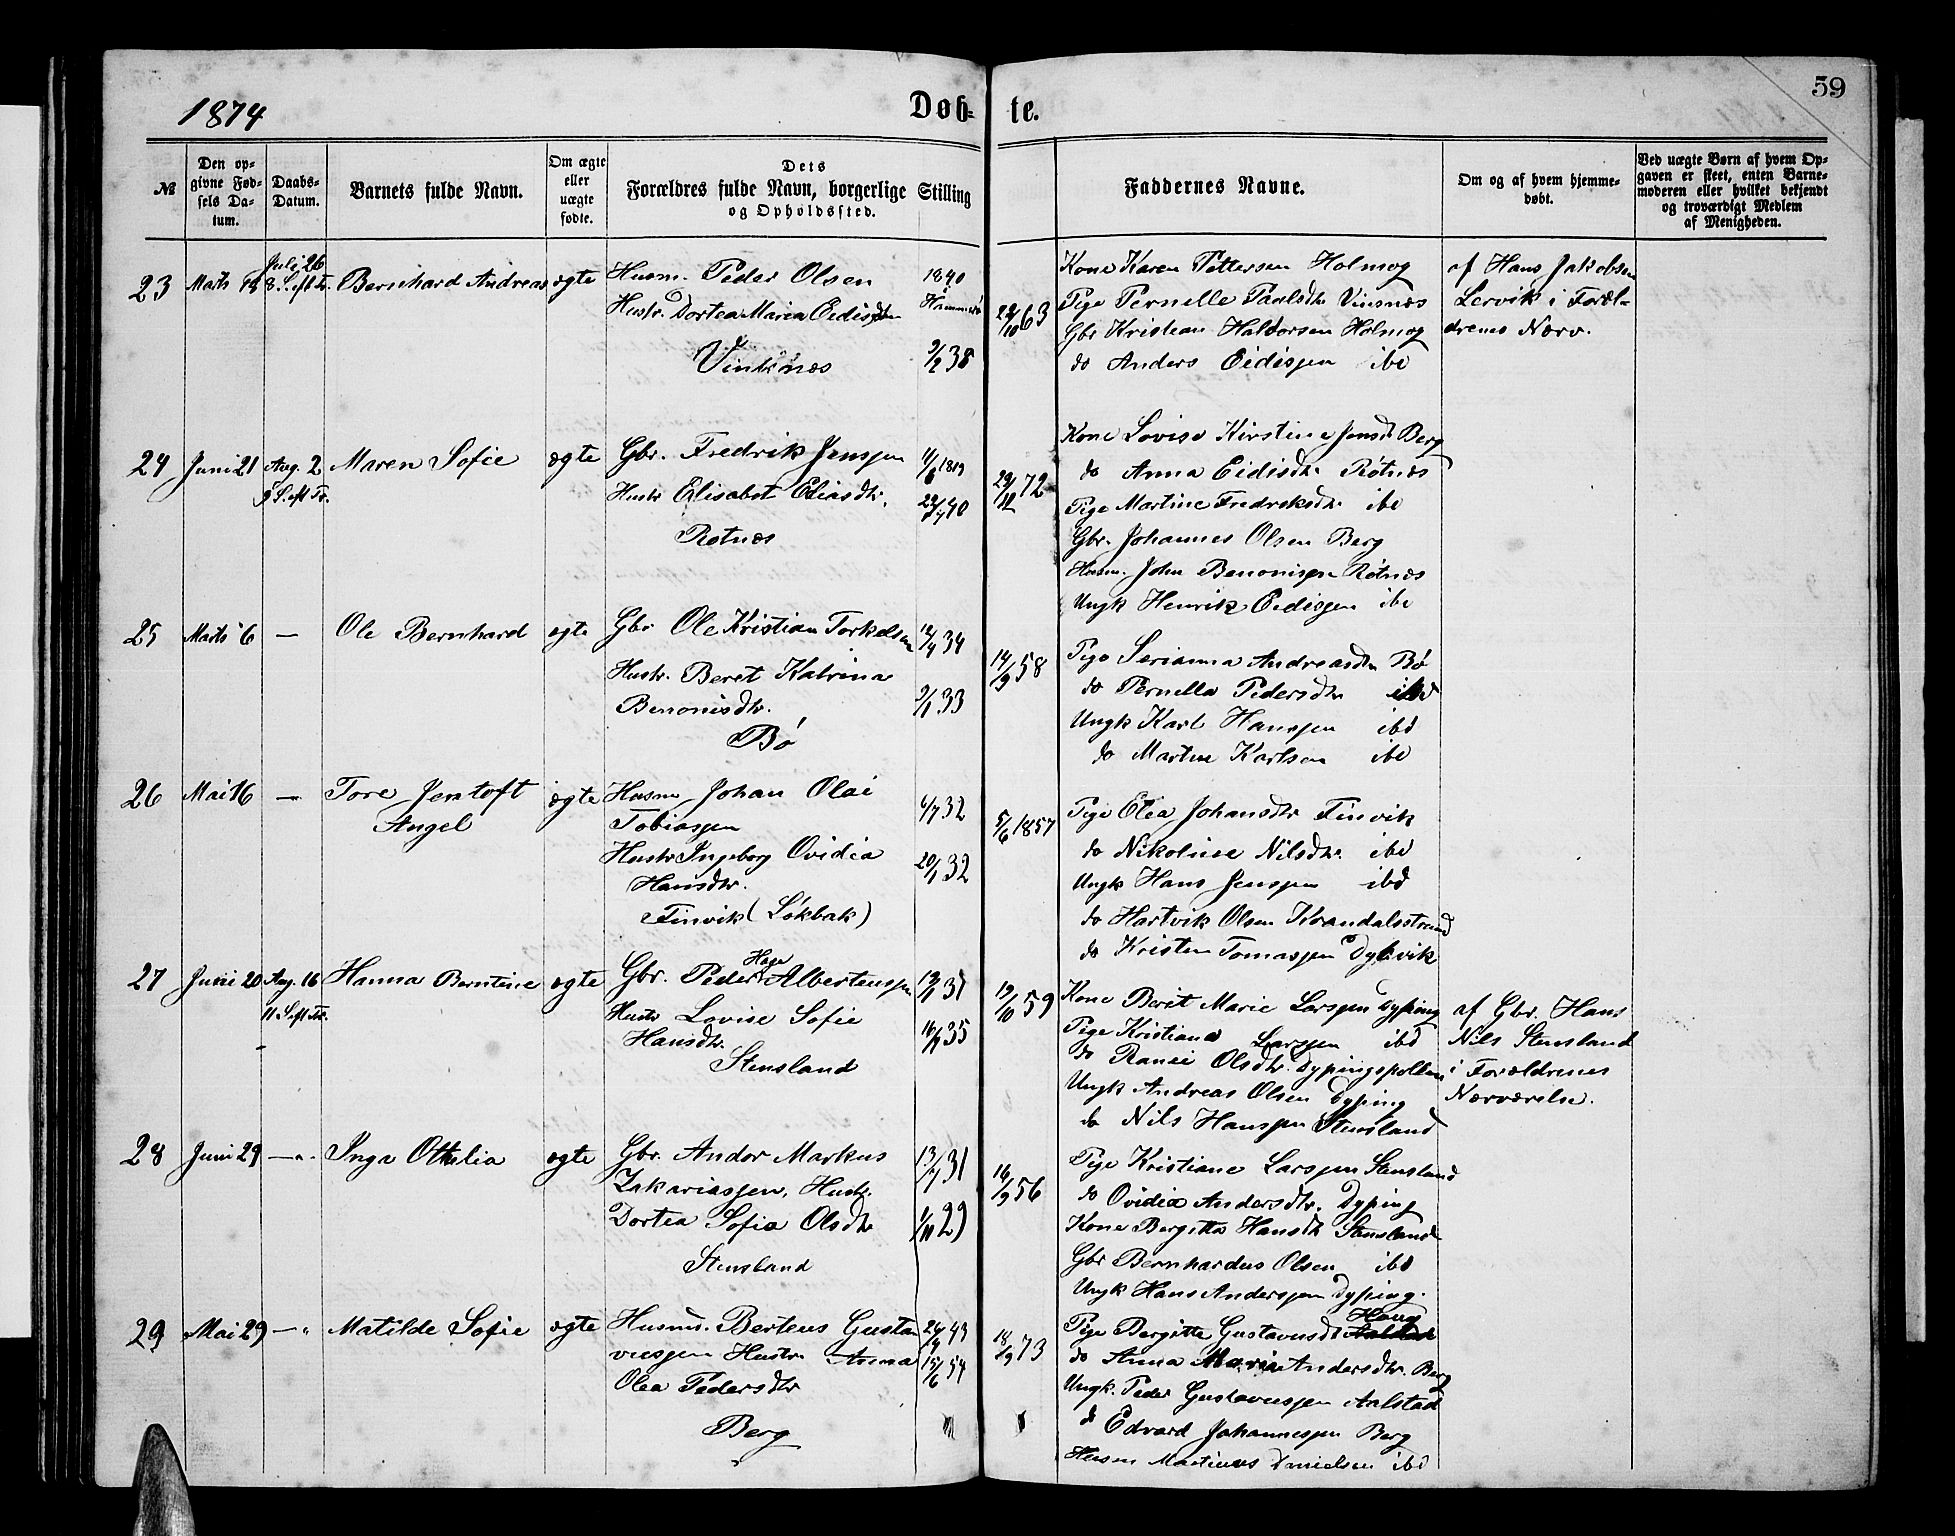 59
1874
Døb-
te.
№
Den op-
givne Fød-
sels Da-
tum.
Daabs-
Datum.
Barnets fulde Navn.
Om ægte
eller
uægte
fødte.
Dets
Forældres fulde Navn, borgerlige Stilling
og Opholdssted.
Faddernes Navne.
Om og af hvem hjemme-
døbt.
Ved uægte Børn af hvem Op-
gaven er skeet, enten Barne-
moderen eller hvilket bekjendt
og troværdigt Medlem
af Menigheden.
23
Marts
Juli 26
8. S. eft Tr.
Bernhard Andreas
ægte
Husm. Peder Olsen
Hustr. Dortea Maria
1840
9/2 38
22/10 63
Kone Karen Pettersen Holmog
Pige Pernelle Paalsdtr
Gbr Kristian Haldorsen Holmog
do Anders Eidissen ibd
af Hans Jakobsen
Lervik i Foræl-
drenes Nærv.
24
Juni 21
Aug. 2
9 S. eft Tr.
Maren Sofie
ægte
Gbr. Fredrik Jenssen
Hustr Elisabet Eliasdtr.
Rotnæs
1819
29/12 72
Kone Lovise Kirstine Jensdt Berg
do Anna Eidisdtr Rotnæs
Pige Martine Fredriksdtr ibd
Gbr. Johannes Olsen Berg
Husm. John Benonisen Rotnæs
Ungk Henrik Eidissen ibd
25
Marts 6
—
Ole Bernhard
ægte
Gbr Ole Kristian Torkelsen
Hustr. Beret Katrina
Benonisdtr.
Bø
12/4 34
9/1 33
14/9 58
Pige Serianna Andreasdtr Bø
do Pernella Pedersdtr ibd
Ungk Karl Hanssen ibd
do Martin Karlsen ibd
26
Mai 16
—
Tore Jentoft
Angel
ægte
Husm Johan Olai
Tobiassen
Hustr Ingeborg Ovidia
Hansdtr.
Finvik (Løkbak)
6/7 32
20/1 32
5/6 1857
Pige Elea Johansdtr Finvik
do Nikoline Nilsdtr. ibd
Ungk Hans Jenssen ibd
do Hartvik Olsen
do Kristen Tomassen Dybvik
27
Juni 20
Aug. 16
11 S. eft Tr.
Hanna Berntine
ægte
Gbr. Peder Hage Albertussen
Hustr Lovise Sofie
Hansdtr.
Stensland
31
35
19/10 59
Kone Berit Marie Larssen Dyping
Pige Kristiane Larssen ibd
do Olsdtr. Dypingspollen
Ungk Andreas Olsen Dyping
do Nils Hanssen Stensland
af Gbr. Hans
Nils Stensland
i Forældrenes
Nærværelse.
28
Juni 29
—"
Inga Othelia
ægte
Gbr. Andor Markus
Zakariassen, Hustr.
Dortea Sofia Olsdtr
Stensland
31
29
16/9 56
Pige Kristiane Larssen Stensland
do Ovidia Andersdtr. Dyping
Kone Bergitta Hansdtr Stensland
Gbr Bernhardus Olsen ibd
Ungk Hans Anderssen Dyping.
29
Mai 29
—"
Matilde Sofie
ægte
Husmd. Berteus Gusta
vussen Hustr Anna
Olea Pedersdtr
Berg
43
15/6 54
18/9 73
Pige Bergitte Gustavusdt
do Anna Maria Andersdtr. Berg
Ungk. Peder Gustavussen Aalstad
do Edvard Johannessen Berg
Husm Martinus Danielsen ibd